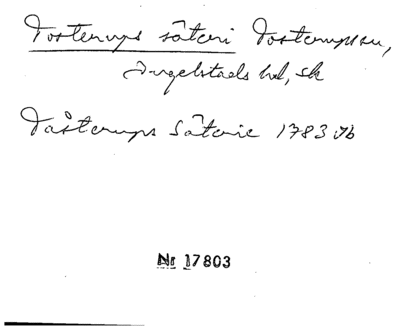 Tosterups säteri Tosterups sn,
Ingelstads hd, Sk
Tåsterups Säterie 1783 Jb
Nr 17803